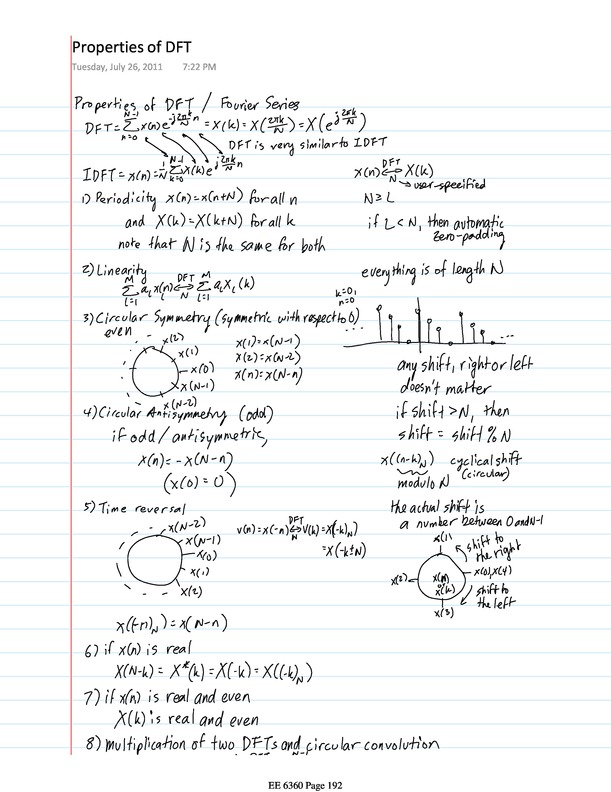 Properties of DFT
Tuesday, July 26, 2011 7:22 PM
Properties of DFT / Fourier Series
DFT = Σ_{n=0}^{N-1} x(n) e^{-j 2πk/N n} = X(k) = X(2πk/N) = X(e^{j 2πk/N})
DFT is very similar to IDFT
IDFT = x(n) = 1/N Σ_{k=0}^{N-1} X(k) e^{j 2πk/N n}
x(n) ⟷ X(k) DFT N
user-specified
1) Periodicity x(n) = x(n+N) for all n
N ≥ L
and X(k) = X(k+N) for all k
if L < N, then automatic
zero-padding
note that N is the same for both
2) Linearity
everything is of length N
Σ_{l=1}^{M} a_l x_l(n) ⟷ Σ_{l=1}^{M} a_l X_l(k) DFT N
k=0,
n=0
3) Circular Symmetry (symmetric with respect to 0)
even
x(2)
x(1)
x(0)
x(N-1)
x(N-2)
x(1) = x(N-1)
x(2) = x(N-2)
x(n) = x(N-n)
...
any shift, right or left
doesn't matter
if shift > N, then
shift = shift % N
x((n-k)_N) cyclical shift
(circular)
modulo N
4) Circular Antisymmetry (odd)
if odd / antisymmetric,
x(n) = -x(N-n)
(x(0) = 0)
the actual shift is
a number between 0 and N-1
5) Time reversal
x(N-2)
x(N-1)
x(0)
x(1)
x(2)
v(n) = x(-n) ⟷ V(k) = X((-k)_N) DFT N
= X(-k±N)
x(1)
shift to
the right
x(0), x(4)
x(2)
x(n)
x(k)
shift to
the left
x(3)
x((-n)_N) = x(N-n)
6) if x(n) is real
X(N-k) = X*(k) = X(-k) = X((-k)_N)
7) if x(n) is real and even
X(k) is real and even
8) multiplication of two DFTs and circular convolution
EE 6360 Page 192